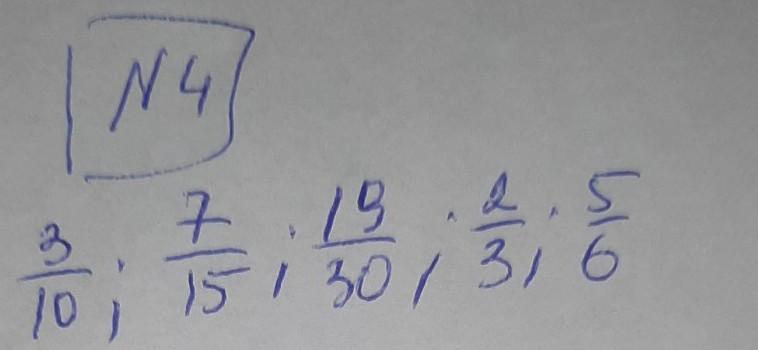 N4
3/10; 7/15; 19/30; 2/3; 5/6